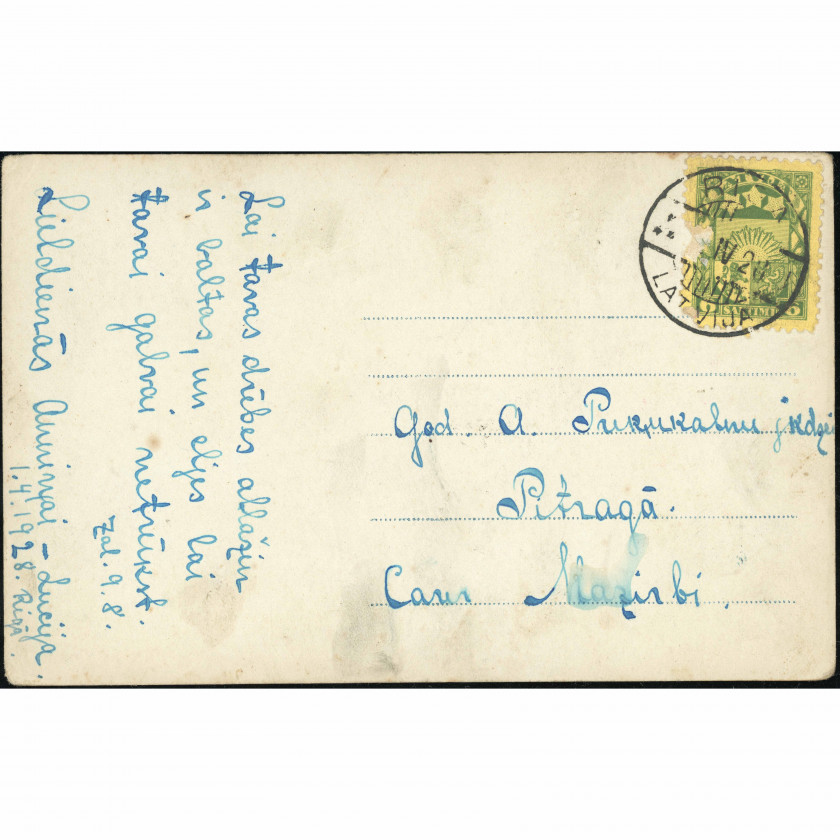 Lai tavas drēbes allažiņ
ir baltas, un eļjes lai
tavai galvai netrūkst.
Zal. 9. 8.
Lieldienās Anniņai – Lucija.
1.4.1928. Rīgā.
God. A. Puķukalnu jkdzei
Pitragā.
Caur Mazirbi.
LATVIJA